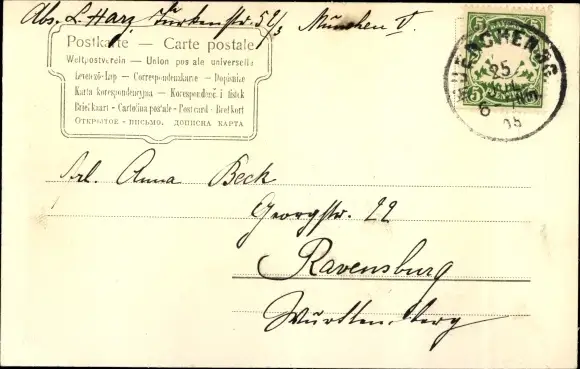 Abs. L. Harz Türkenstr. 52/3 München V.
Postkarte — Carte postale
Weltpostverein — Union postale universelle
Levelező-Lap — Correspondenzkarte — Dopisnice
Karta korespondencyjna — Korespondenčí lístek
Briefkaart - Cartolina postale - Postcard - Brefkort
Открытое - письмо. дописна карта
5 5
BAYERN
25
6
05
Frl. Anna Beck
Georgstr. 22
Ravensburg
Württemberg